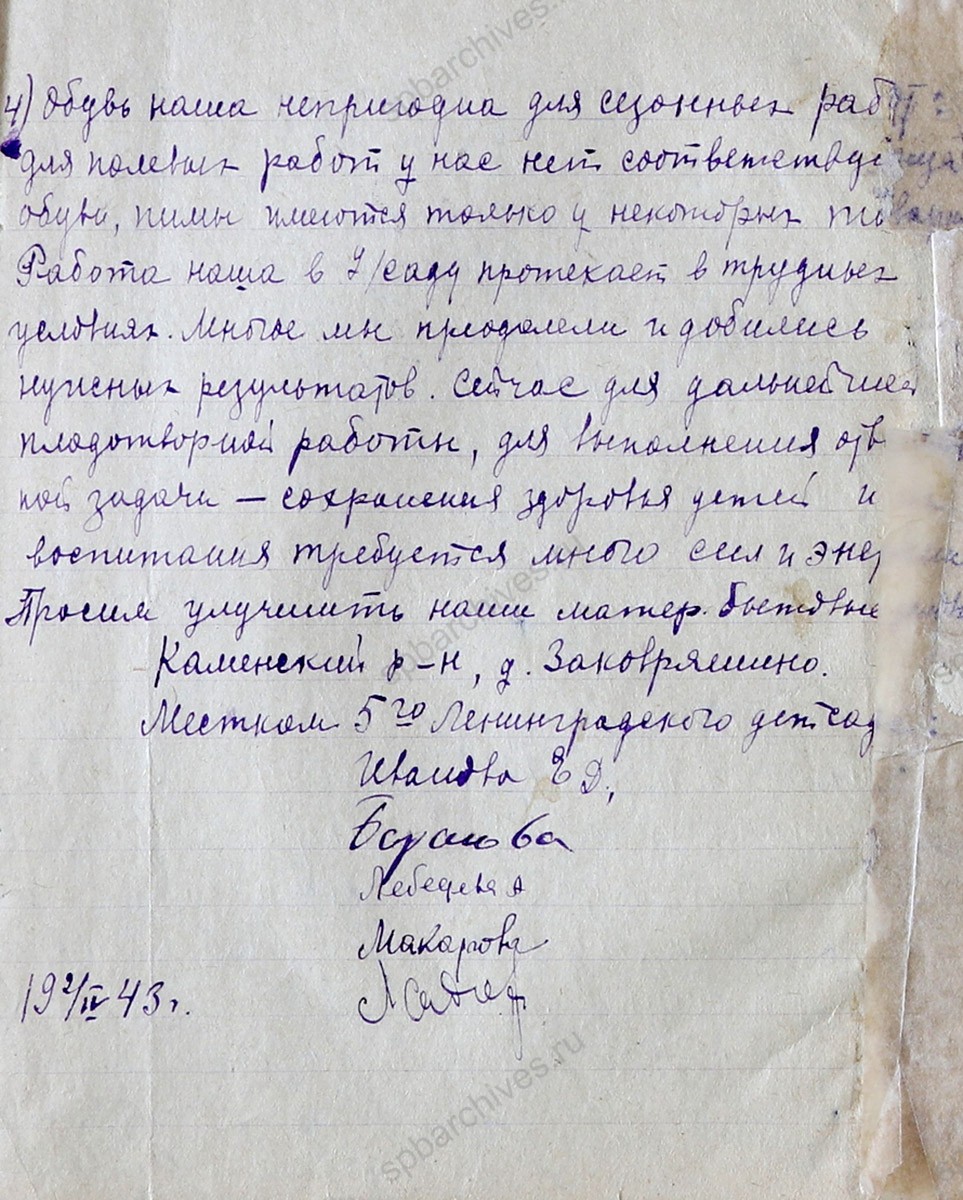 spbarchives.ru
4) Обувь наша непригодна для сезонных раб
для полевых работ у нас нет соответствую
обуви, пимы имеются только у некоторых
Работа наша в д/саду протекает в трудных
условиях. Многое мы преодолели и добились
нужных результатов. Сейчас для дальнейшей
плодотворной работы, для выполнения отв
ной задачи — сохранения здоровья детей и
воспитания требуется много сил и энер
Просим улучшить наши матер. бытовые
Каменский р-н, д. Заковряшино.
Местком 5го Ленинградского детсад
Иванова Е Д,
Лебедева А
Макарова
19 2/IV 43 г.
spbarchives.ru